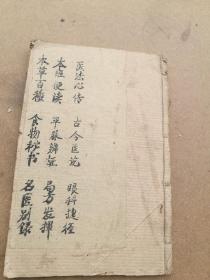 医法心传 古今医论 眼科捷径
本经便读 平脉辨证 局方发挥
本草百种 食物秘书 名医别录